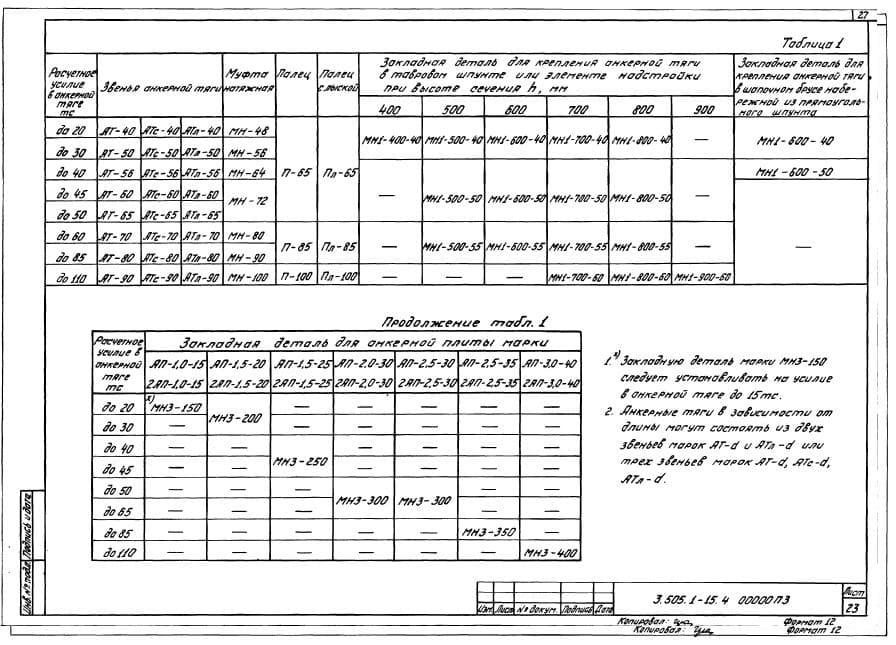 27
Таблица 1
Расчетное усилие в анкерной тяге тс | Звенья анкерной тяги | Муфта натяжная | Палец | Палец с лыской | Закладная деталь для крепления анкерной тяги в тавровом шпунте или элементе надстройки при высоте сечения h, мм | Закладная деталь для крепления анкерной тяги в шапочном брусе набережной из прямоугольного шпунта
400 | 500 | 600 | 700 | 800 | 900
до 20 | АТ-40 | АТс-40 | АТл-40 | МН-48 | П-65 | Пл-65 | МН1-400-40 | МН1-500-40 | МН1-600-40 | МН1-700-40 | МН1-800-40 | — | МН1-600-40
до 30 | АТ-50 | АТс-50 | АТл-50 | МН-56
до 40 | АТ-56 | АТс-56 | АТл-56 | МН-64 | — | МН1-500-50 | МН1-600-50 | МН1-700-50 | МН1-800-50 | — | МН1-600-50
до 45 | АТ-60 | АТс-60 | АТл-60 | МН-72 | —
до 50 | АТ-65 | АТс-65 | АТл-65
до 60 | АТ-70 | АТс-70 | АТл-70 | МН-80 | П-85 | Пл-85 | — | МН1-500-55 | МН1-600-55 | МН1-700-55 | МН1-800-55 | —
до 85 | АТ-80 | АТс-80 | АТл-80 | МН-90
до 110 | АТ-90 | АТс-90 | АТл-90 | МН-100 | П-100 | Пл-100 | — | — | — | МН1-700-60 | МН1-800-60 | МН1-900-60
Продолжение табл. 1
Расчетное усилие в анкерной тяге тс | Закладная деталь для анкерной плиты марки
АП-1,0-15 | АП-1,5-20 | АП-1,5-25 | АП-2,0-30 | АП-2,5-30 | АП-2,5-35 | АП-3,0-40
2АП-1,0-15 | 2АП-1,5-20 | 2АП-1,5-25 | 2АП-2,0-30 | 2АП-2,5-30 | 2АП-2,5-35 | 2АП-3,0-40
до 20 | х) МН3-150 | МН3-200 | — | — | — | — | —
до 30 | — | — | — | — | — | —
до 40 | — | — | МН3-250 | — | — | — | —
до 45 | — | — | — | — | — | —
до 50 | — | — | — | МН3-300 | МН3-300 | — | —
до 65 | — | — | — | — | —
до 85 | — | — | — | — | — | МН3-350 | —
до 110 | — | — | — | — | — | — | МН3-400
1. х) Закладную деталь марки МН3-150
следует устанавливать на усилие
в анкерной тяге до 15тс.
2. Анкерные тяги в зависимости от
длины могут состоять из двух
звеньев марок АТ-d и АТл-d или
трех звеньев марок АТ-d, АТс-d,
АТл-d.
Инв. № подл. Подпись и дата
Изм. Лист № докум. Подпись Дата
3.505.1-15.4 00000ПЗ
Лист
23
Копировал: Формат 12
Копировал: Формат 12